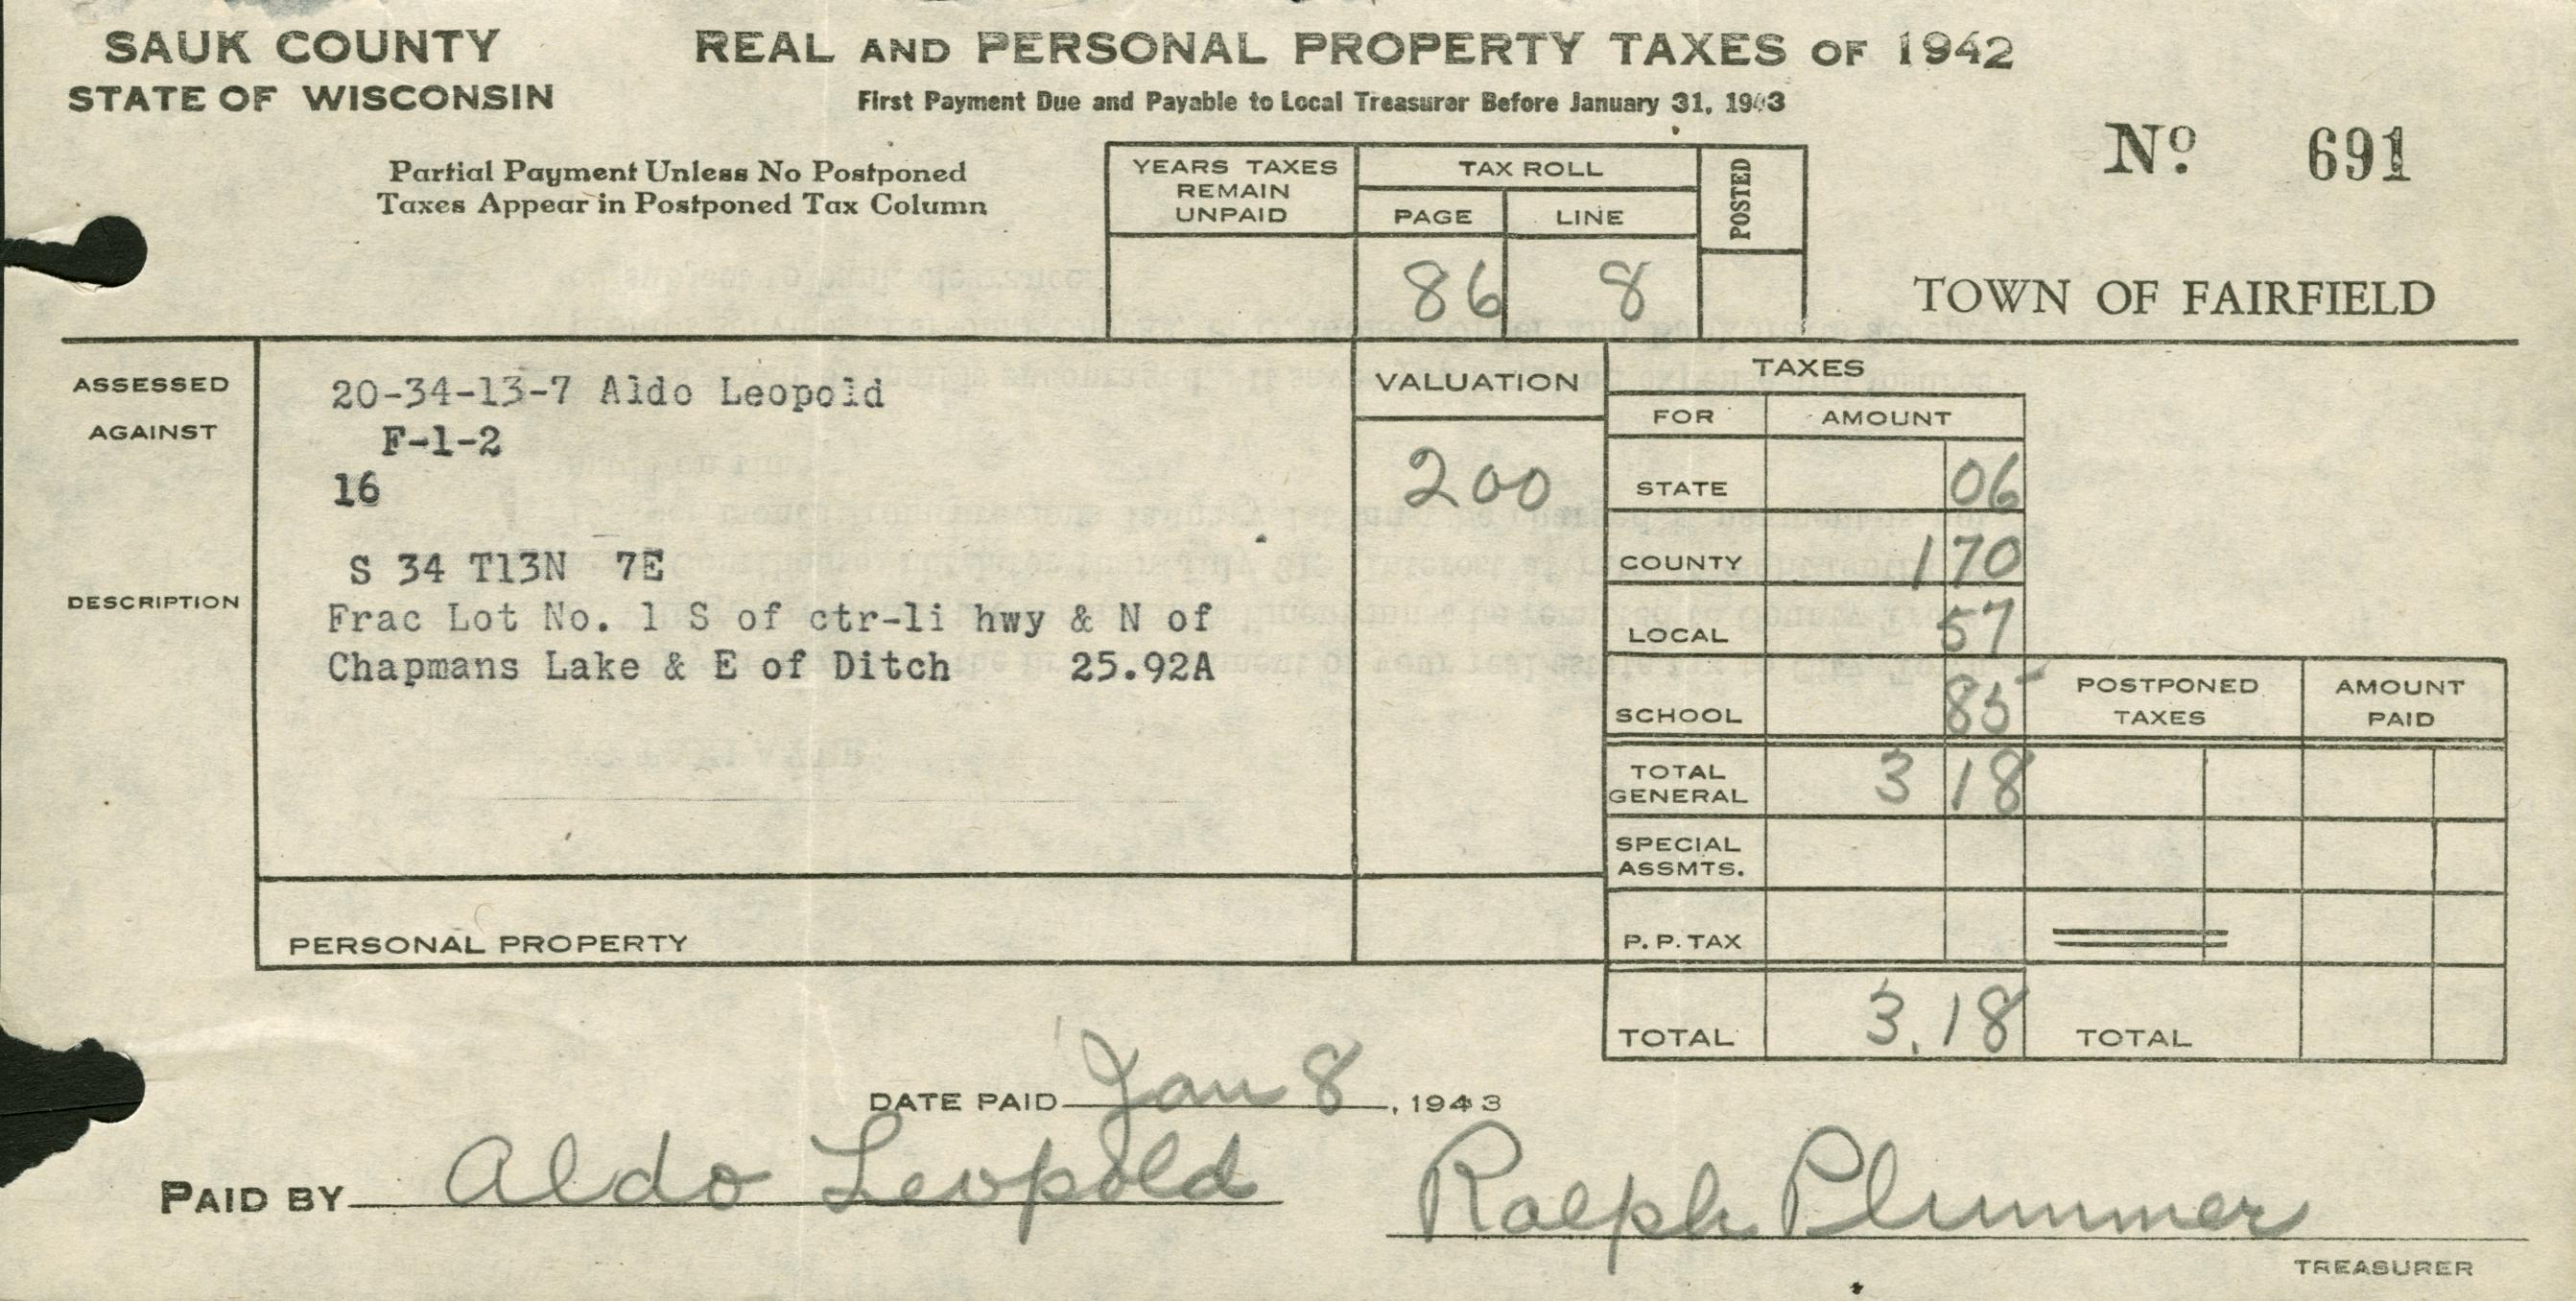 SAUK COUNTY
STATE OF WISCONSIN
REAL AND PERSONAL PROPERTY TAXES OF 1942
First Payment Due and Payable to Local Treasurer Before January 31, 1943
Partial Payment Unless No Postponed
Taxes Appear in Postponed Tax Column
YEARS TAXES
REMAIN
UNPAID
TAX ROLL
PAGE LINE
86 8
POSTED
No 691
TOWN OF FAIRFIELD
ASSESSED
AGAINST
20-34-13-7 Aldo Leopold
F-1-2
16
DESCRIPTION
S 34 T13N 7E
Frac Lot No. 1 S of ctr-li hwy & N of
Chapmans Lake & E of Ditch 25.92A
PERSONAL PROPERTY
VALUATION
200
TAXES
FOR AMOUNT
STATE 06
COUNTY 1 70
LOCAL 57
SCHOOL 85
POSTPONED
TAXES
AMOUNT
PAID
TOTAL
GENERAL 3 18
SPECIAL
ASSMTS.
P. P. TAX
TOTAL 3.18 TOTAL
DATE PAID Jan 8, 1943
PAID BY Aldo Leopold
Ralph Plummer
TREASURER